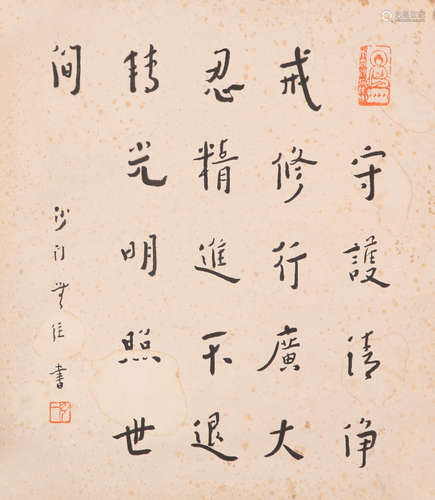 守護清淨
戒修行廣大
忍精進不退
轉光明照世
間
沙門無住書